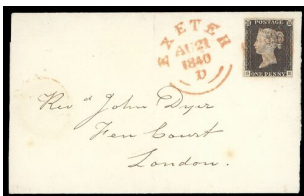 EXETER
AU 21
1840
D
POSTAGE
ONE PENNY
Revd John Dyer
Fen Court
London.